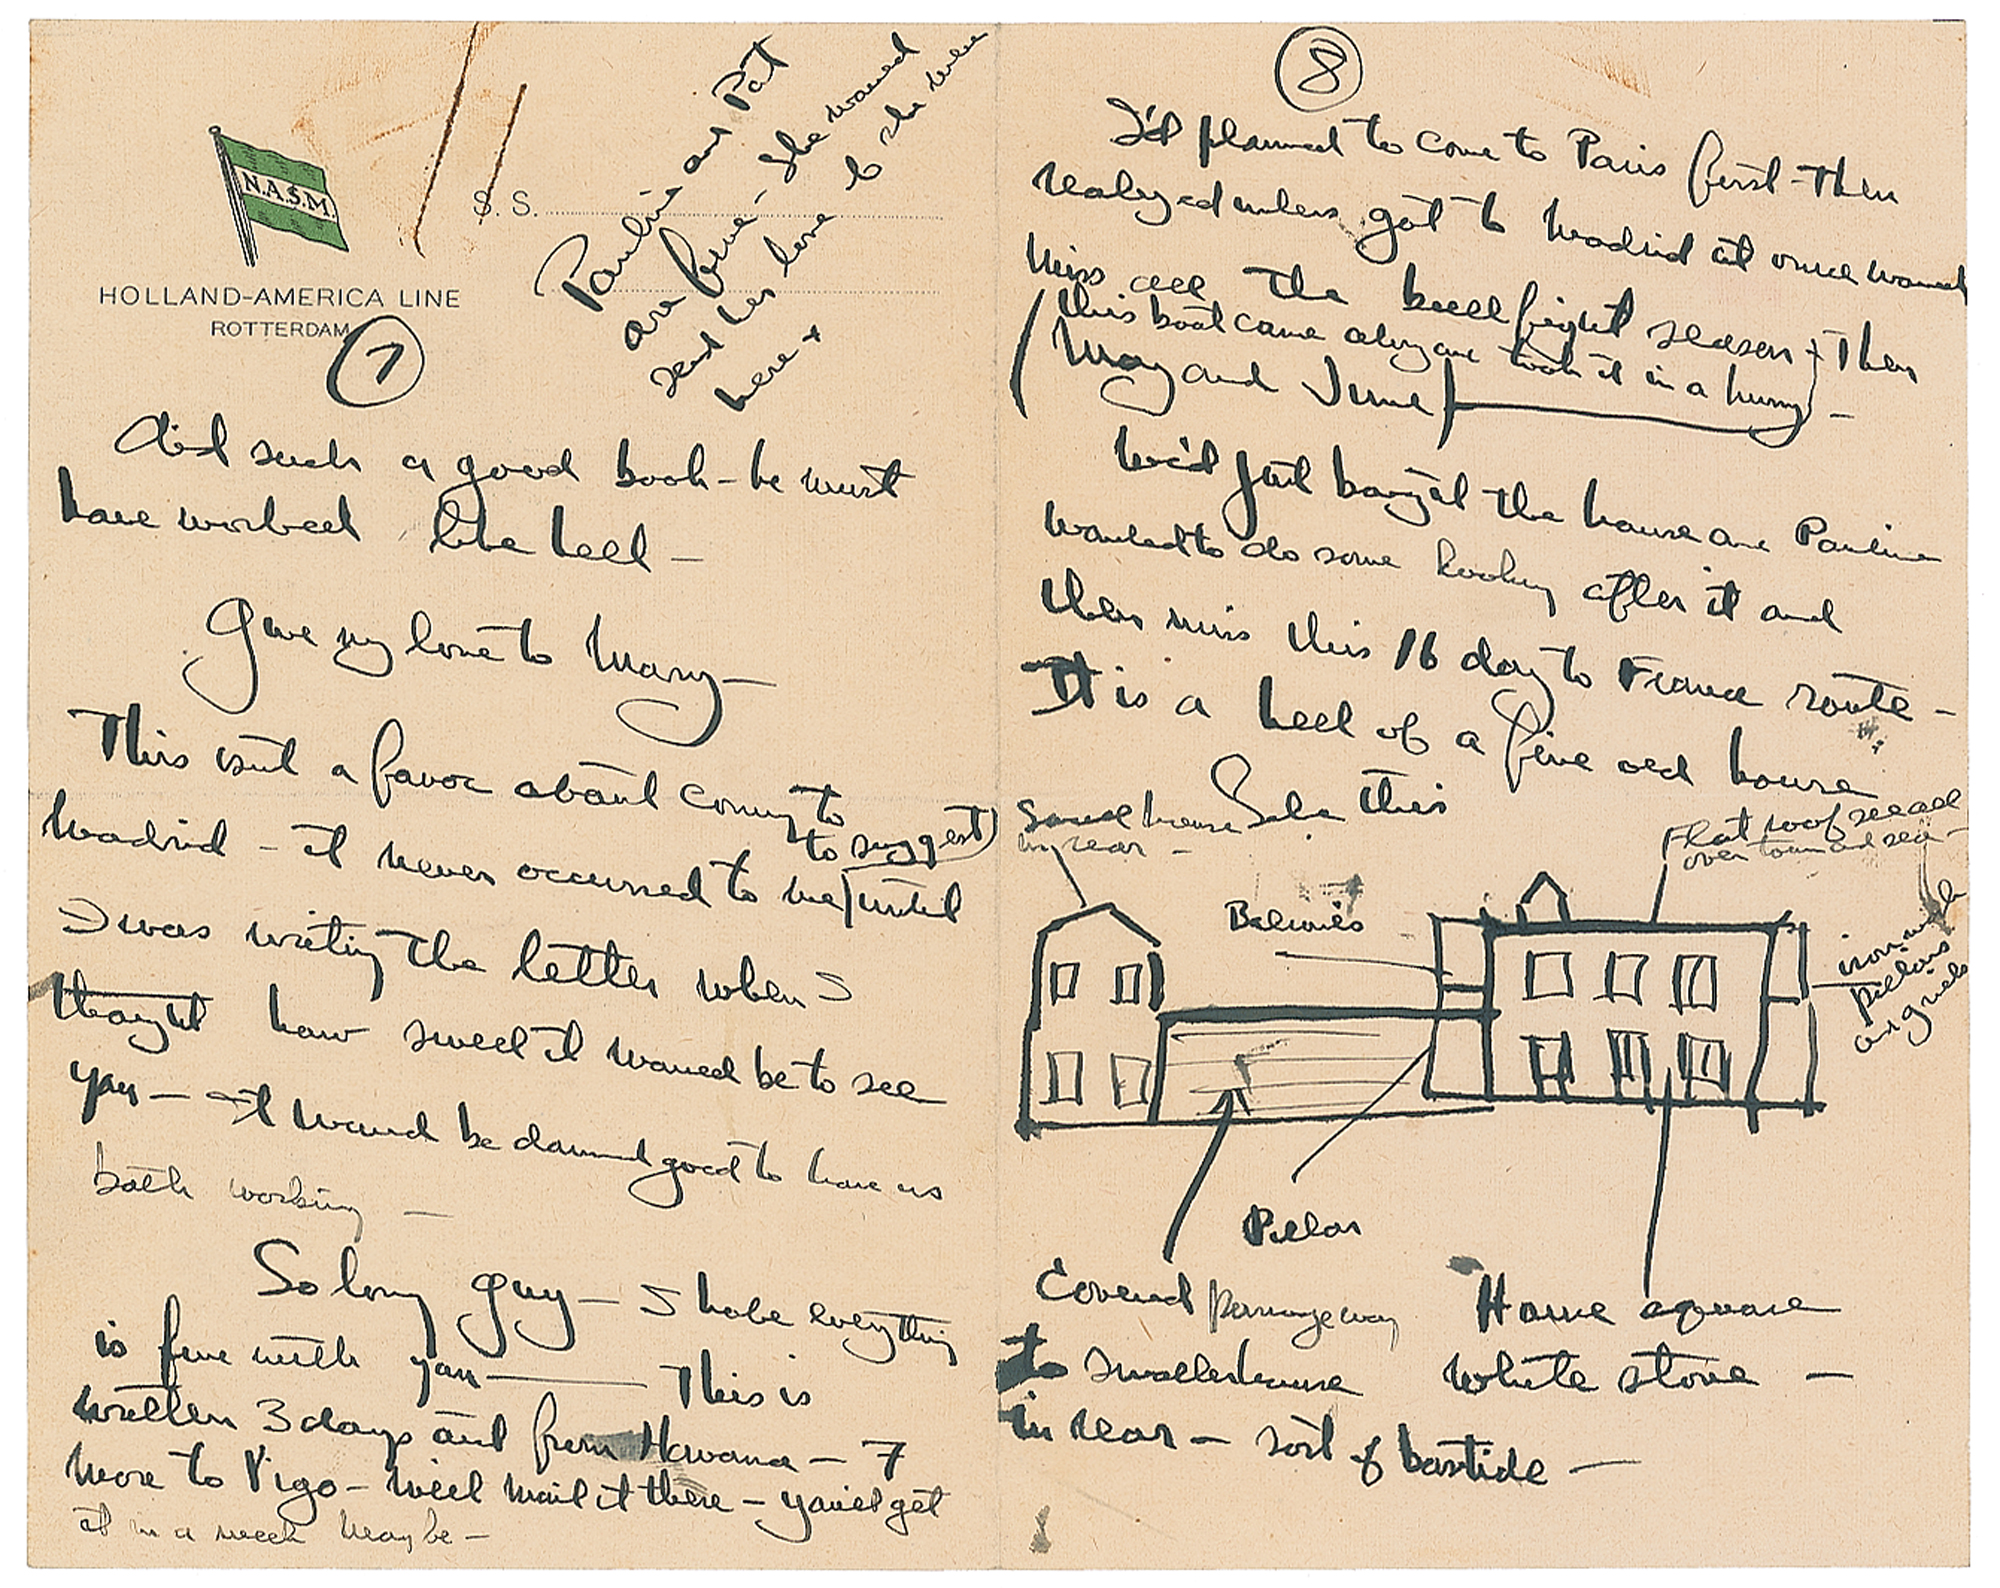 N.A.S.M.
HOLLAND-AMERICA LINE
ROTTERDAM
S.S.
7
Pauline and Pat
are fine - She would
send her love to she were
here +
And such a good book - he must
have worked like hell -
Give my love to Mary -
This isnt a favor about coming to
Madrid - it never occurred to me (to suggest) until
I was writing the letter when I
thought how sweet it would be to see
you - It would be damned good to have us
both working -
So long guy - I hope everything
is fine with you - This is
written 3 days out from Havana - 7
more to Vigo - will mail it there - you'll get
it in a week maybe -
8
I'd planned to come to Paris first - Then
realized unless got to Madrid at once would
miss all the bull fight season + Then
this boat came along and took it in a hurry -
(May and June)
We'd just bought the house and Pauline
wanted to do some looking after it and
then miss this 16 day to France route -
It is a hell of a fine old house
Like this
Small house
in rear -
Flat roof see all
over town and sea -
Balconies
iron
pillars
Pillar
Covered passageway
to smaller house
in rear - sort of bastide -
House square
white stone -